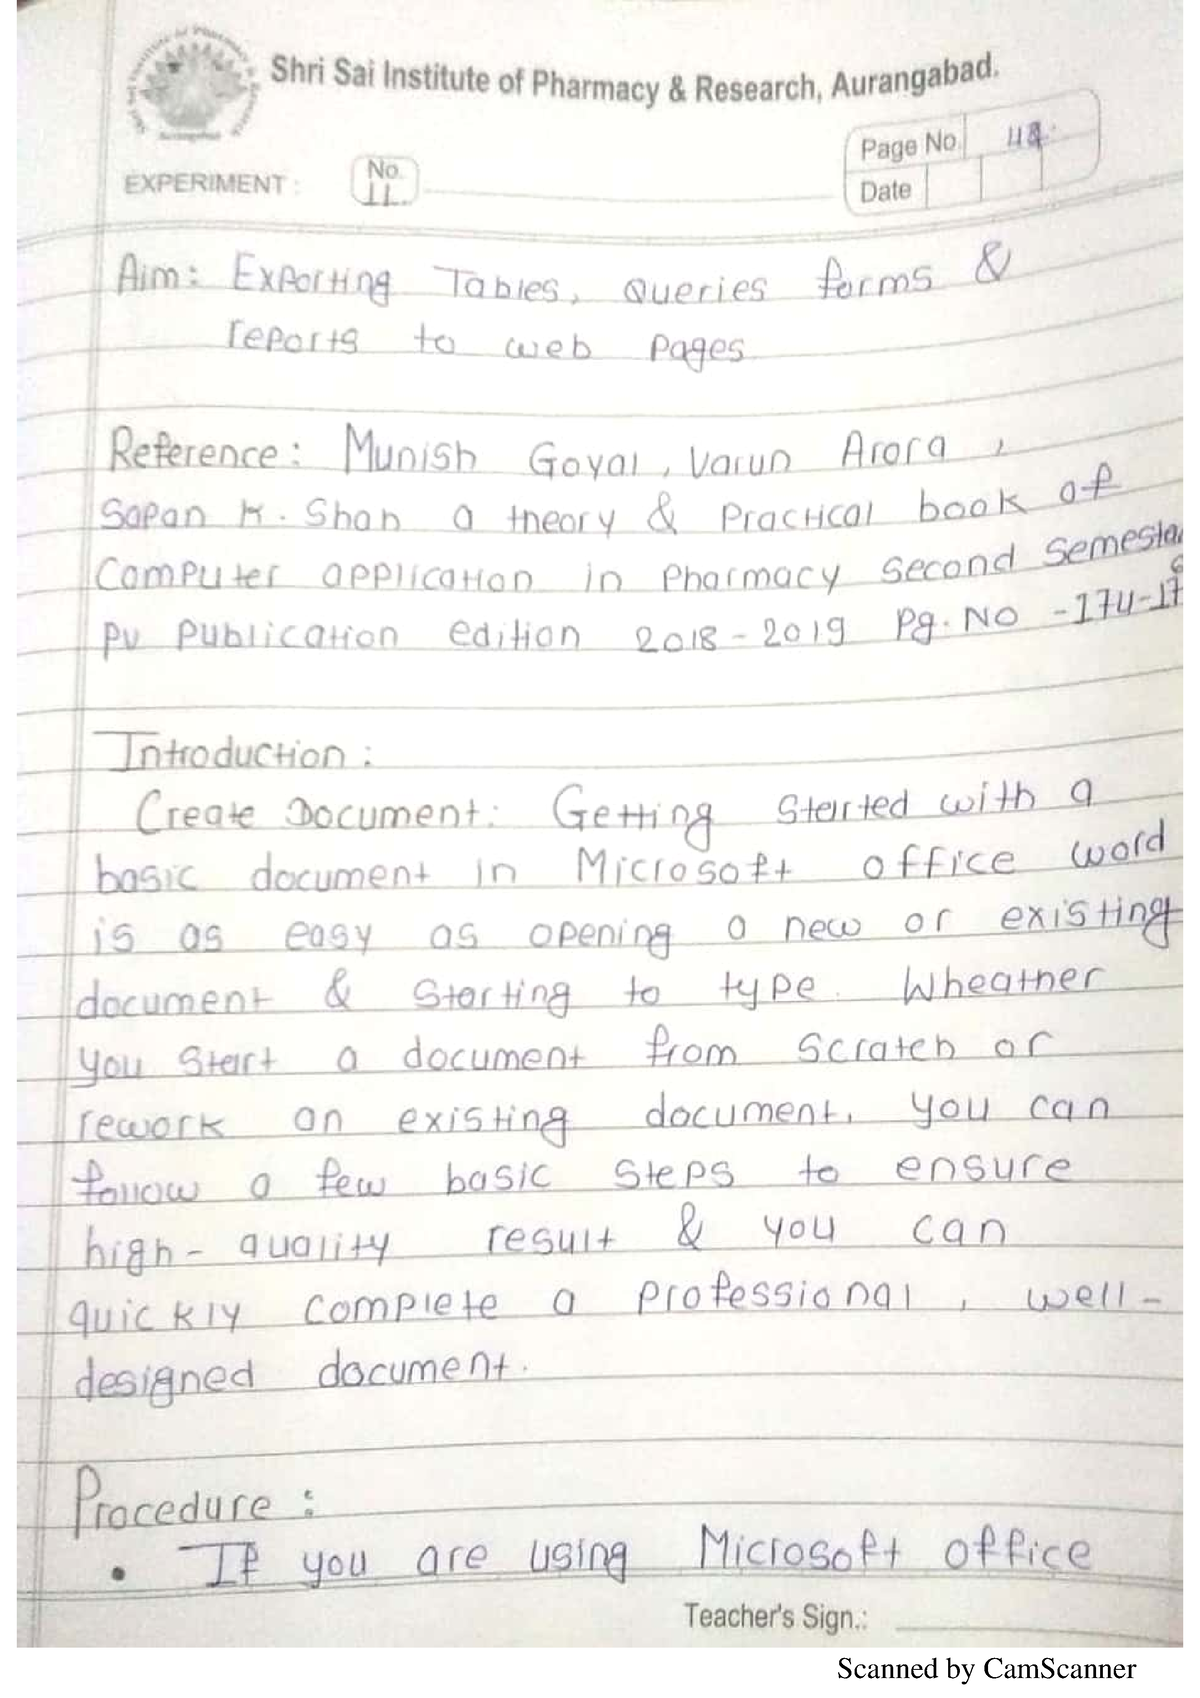 Shri Sai Institute of Pharmacy & Research, Aurangabad.
Page No.
EXPERIMENT :
No.
11.
Date
Aim: Exporting Tables, queries forms &
reports to web pages
Reference: Munish Goyal, Varun Arora,
Sapan K. Shah a theory & Practical book of
Computer application in Pharmacy second Semester
PV Publication edition 2018-2019 Pg. No -174-17
Introduction :
Create Document: Getting started with a
basic document in Microsoft office word
is as easy as opening a new or existing
document & Starting to type. Wheather
you start a document from scratch or
rework an existing document, you can
follow a few basic steps to ensure
high-quality result & you can
quickly complete a professional, well-
designed document.
Procedure :
• If you are using Microsoft office
Teacher's Sign.:
Scanned by CamScanner